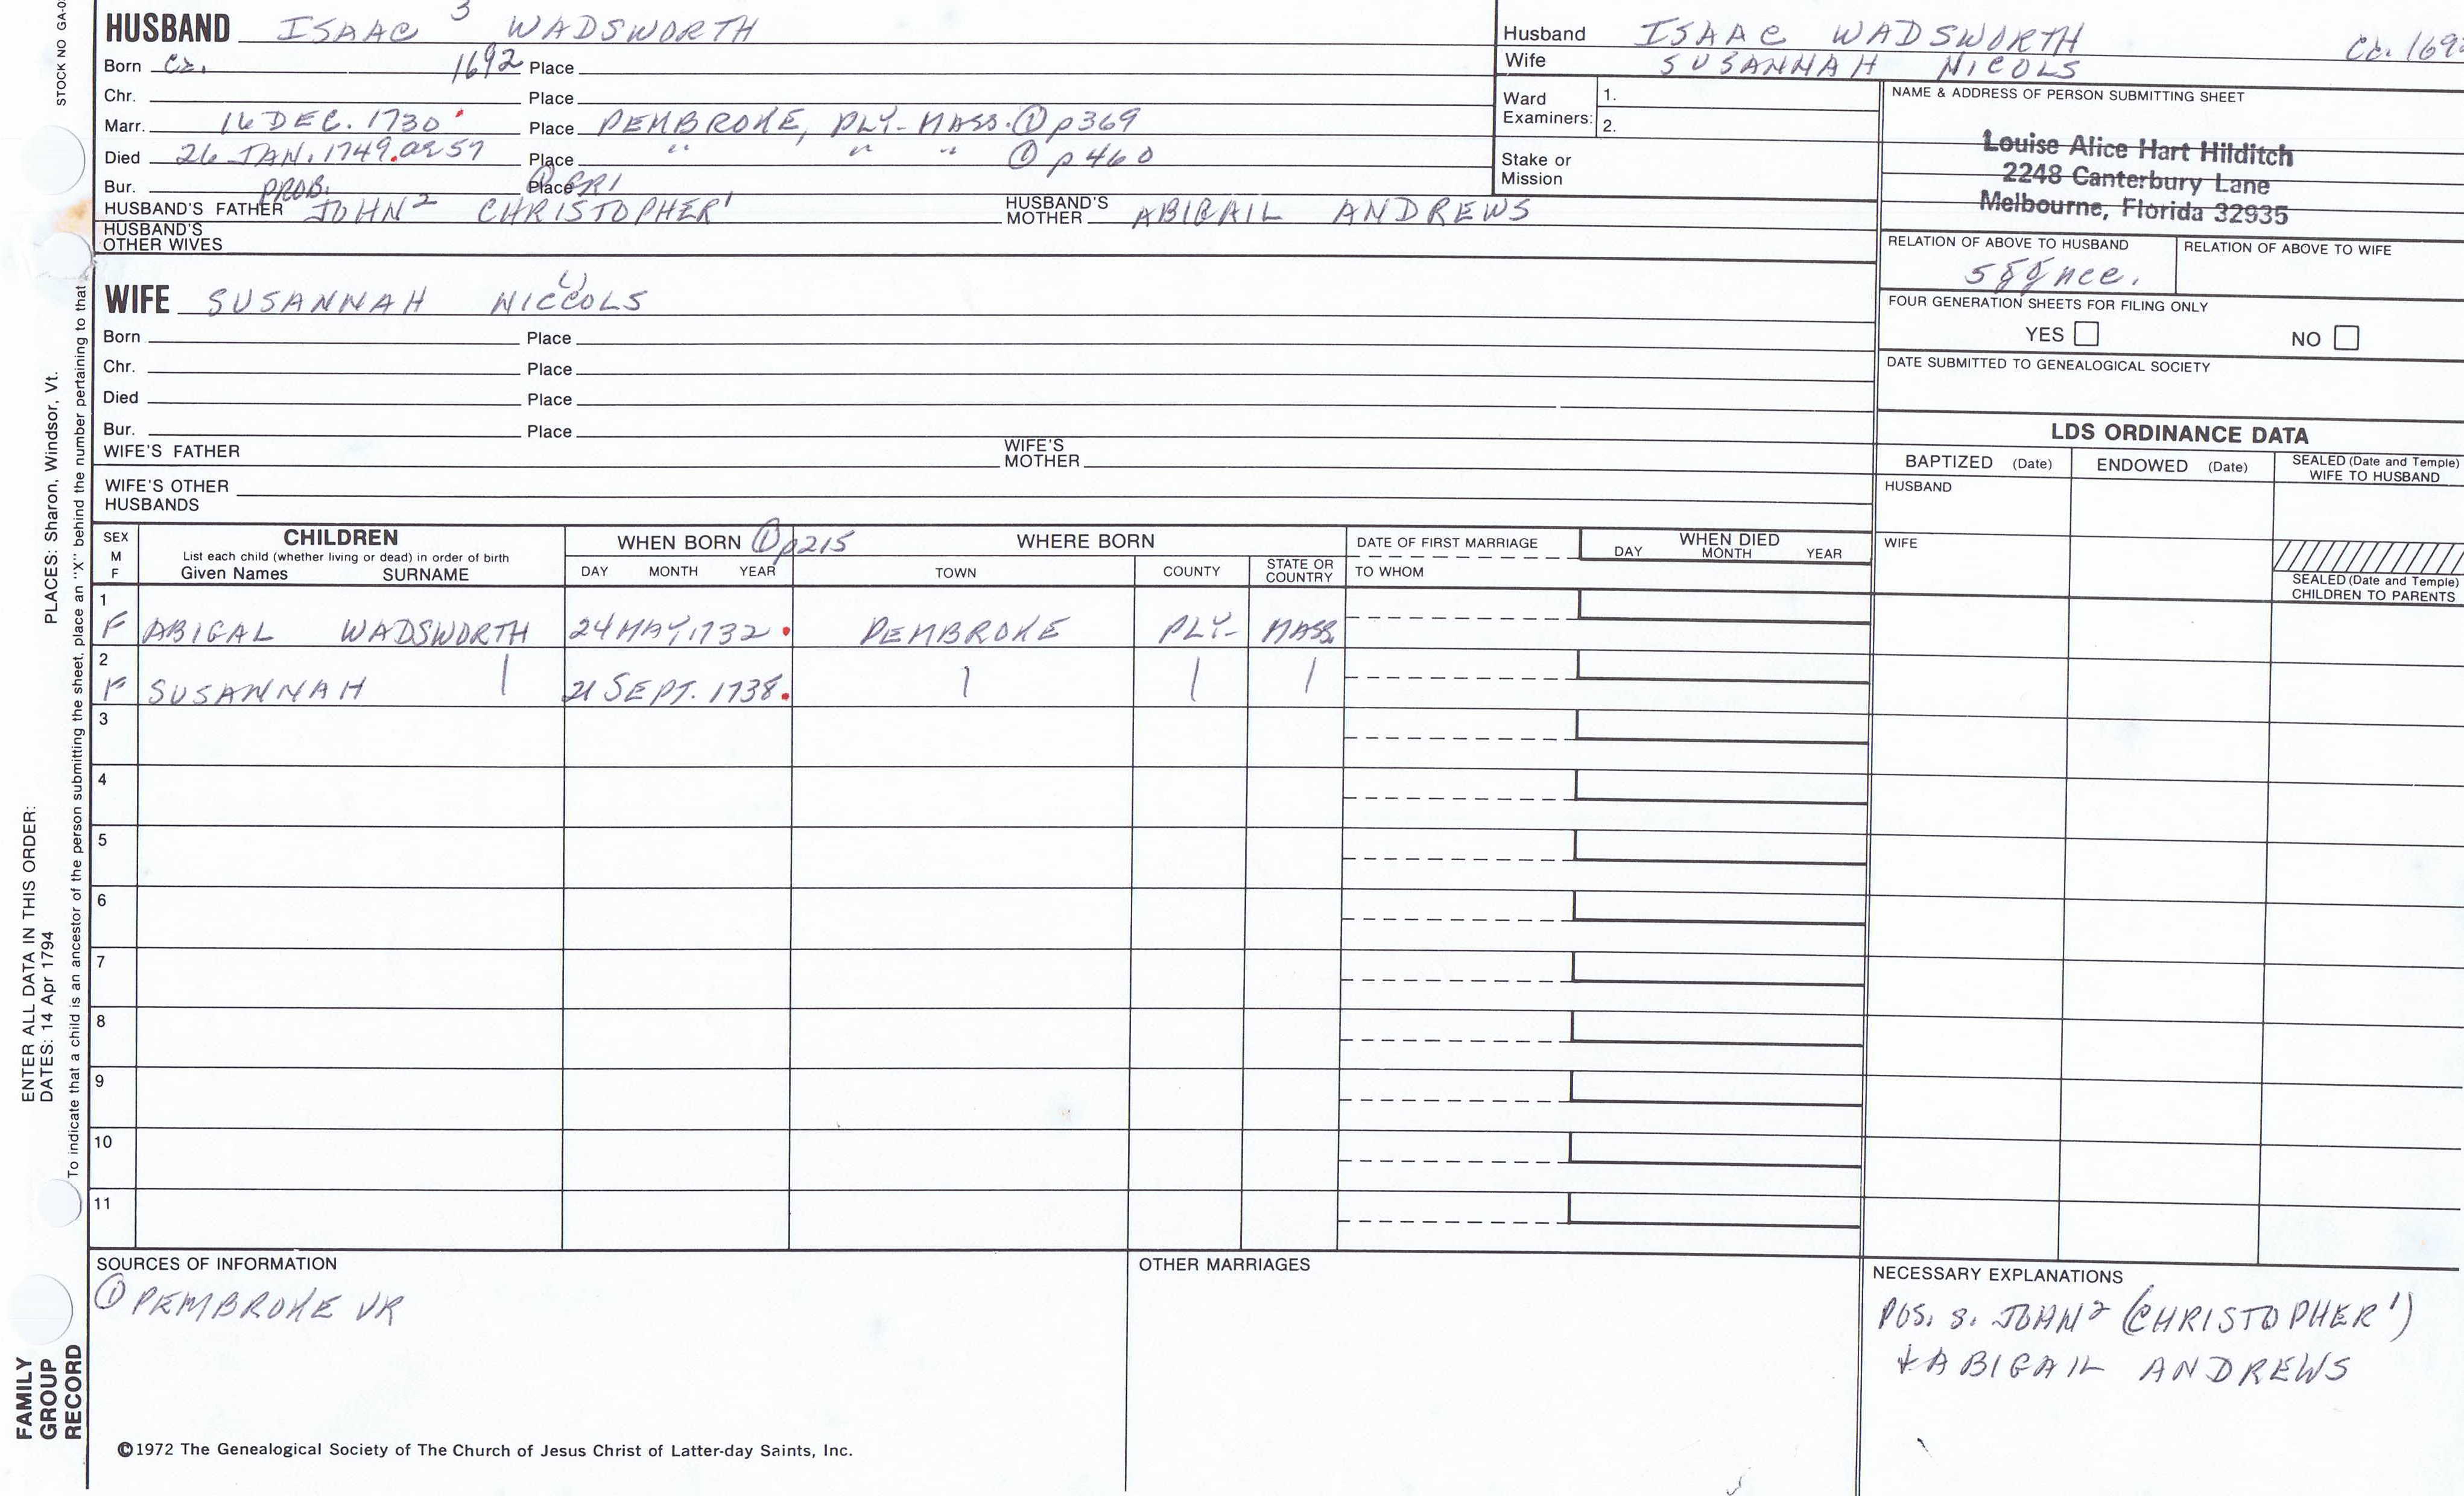 STOCK NO GA-0
HUSBAND ISAAC 3 WADSWORTH
Born Ca. 1692 Place
Chr. Place
Marr. 16 DEC. 1730 Place PEMBROKE, PLY- MASS. ① p369
Died 26 JAN. 1749. ae 57 Place " " " ① p460
Bur. Place ① GR1
HUSBAND'S FATHER PROB. JOHN² CHRISTOPHER¹ HUSBAND'S MOTHER ABIGAIL ANDREWS
HUSBAND'S OTHER WIVES
Husband ISAAC WADSWORTH Ca. 169
Wife SUSANNAH NICOLS
Ward Examiners: 1.
2.
Stake or Mission
NAME & ADDRESS OF PERSON SUBMITTING SHEET
Louise Alice Hart Hilditch
2248 Canterbury Lane
Melbourne, Florida 32935
RELATION OF ABOVE TO HUSBAND RELATION OF ABOVE TO WIFE
5ggnce.
FOUR GENERATION SHEETS FOR FILING ONLY
YES NO
DATE SUBMITTED TO GENEALOGICAL SOCIETY
WIFE SUSANNAH NICCOLS
Born Place
Chr. Place
Died Place
Bur. Place
WIFE'S FATHER WIFE'S MOTHER
WIFE'S OTHER HUSBANDS
LDS ORDINANCE DATA
BAPTIZED (Date) ENDOWED (Date) SEALED (Date and Temple) WIFE TO HUSBAND
HUSBAND
WIFE
SEALED (Date and Temple) CHILDREN TO PARENTS
SEX M F CHILDREN WHEN BORN ① p215 WHERE BORN DATE OF FIRST MARRIAGE WHEN DIED
List each child (whether living or dead) in order of birth
Given Names SURNAME DAY MONTH YEAR TOWN COUNTY STATE OR COUNTRY TO WHOM DAY MONTH YEAR
1 F ABIGAL WADSWORTH 24 MAY, 1732. PEMBROKE PLY- MASS.
2 F SUSANNAH | 21 SEPT. 1738. | | |
3
4
5
6
7
8
9
10
11
SOURCES OF INFORMATION
① PEMBROKE VR
OTHER MARRIAGES
NECESSARY EXPLANATIONS
POS. S. JOHN² (CHRISTOPHER¹)
+ ABIGAIL ANDREWS
©1972 The Genealogical Society of The Church of Jesus Christ of Latter-day Saints, Inc.
ENTER ALL DATA IN THIS ORDER:
DATES: 14 Apr 1794 PLACES: Sharon, Windsor, Vt.
To indicate that a child is an ancestor of the person submitting the sheet, place an "X" behind the number pertaining to that
FAMILY
GROUP
RECORD